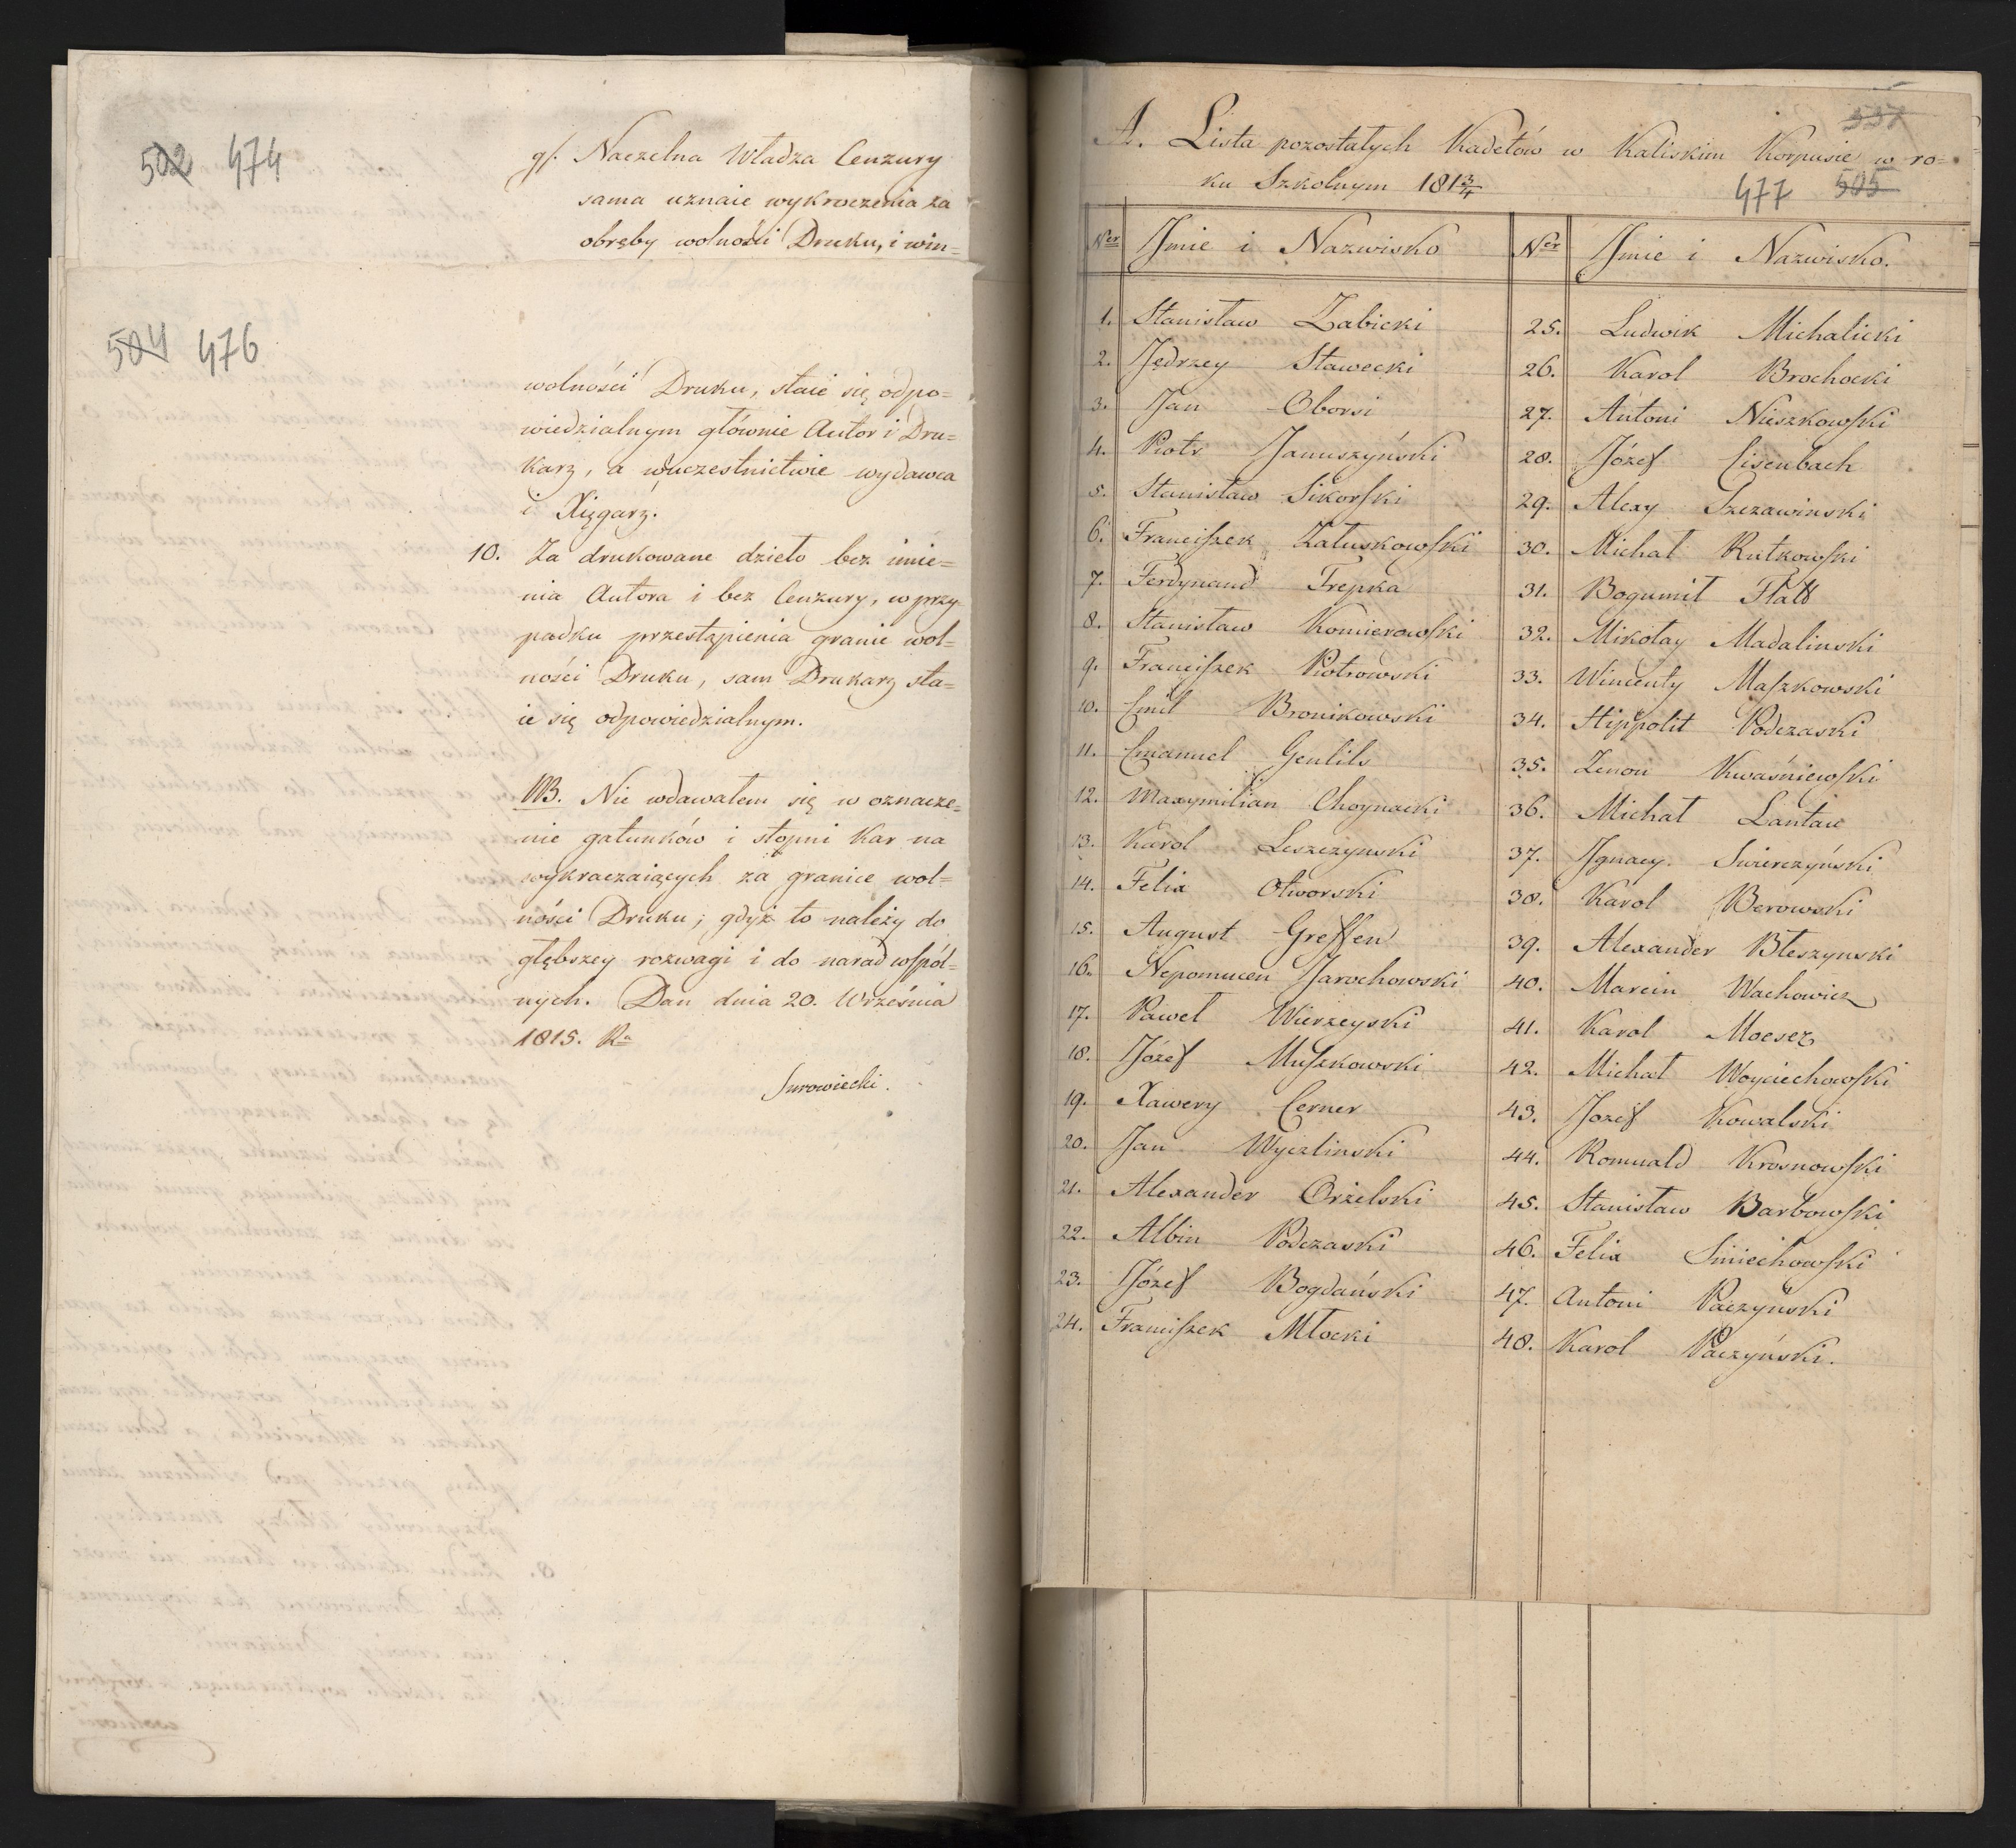 502 474
g/. Naczelna Władza Cenzury
sama uznaie wykroczenia za
obręby wolności Druku, i win=
504 476
wolności Druku, staie się odpo=
wiedzialnym głównie Autor i Dru=
karz, a w uczestnictwie wydawca
i Xięgarz.
10. Za drukowane dzieło bez imie=
nia Autora i bez Cenzury, w przy=
padku przestąpienia granic wol=
ności Druku, sam Drukarz sta=
ie się odpowiedzialnym.
NB. Nie wdawałem się w oznacze=
nie gatunków i stopni Kar na
wykraczaiących za granice wol=
ności Druku; gdyż to należy do
głębszey rozwagi i do narad wspól=
nych. Dan dnia 20. Września
1815. Ru
Surowiecki.
537
A. Lista pozostałych Kadetów w Kaliskim Korpusie w ro=
ku Szkolnym 181¾
477 505
Ner Jmie i Nazwisko Ner Jmie i Nazwisko.
1. Stanisław Zabicki
2. Jędrzey Sławecki
3. Jan Oborsi
4. Piotr Januszyński
5. Stanisław Sikorski
6. Franciszek Załuskowski
7. Ferdynand Trepka
8. Stanisław Komierowski
9. Franciszek Piotrowski
10. Emil Bronikowski
11. Emanuel Gentils
12. Maxymilian Choynacki
13. Karol Leszczynski
14. Felix Otworski
15. August Greffen
16. Nepomucen Jarochowski
17. Paweł Wierzeyski
18. Józef Muszkowski
19. Xawery Cerner
20. Jan Wyczlinski
21. Alexander Orżelski
22. Albin Podczaski
23. Józef Bogdański
24. Franciszek Młocki
25. Ludwik Michalicki
26. Karol Brochocki
27. Antoni Nieszkowski
28. Józef Eisenbach
29. Alexy Szczawinski
30. Michał Rutkowski
31. Bogumił Flatt
32. Mikołay Madalinski
33. Wincenty Maszkowski
34. Hippolit Podczaski
35. Zenon Kwaśniewski
36. Michał Lantau
37. Jgnacy Swierczyński
38. Karol Berowski
39. Alexander Błeszynski
40. Marcin Wachowicz
41. Karol Moesez
42. Michał Woyciechowski
43. Jozef Kowalski
44. Romuald Krosnowski
45. Stanisław Barbowski
46. Felix Smiechowski
47. Antoni Paczyński
48. Karol Paczyński.